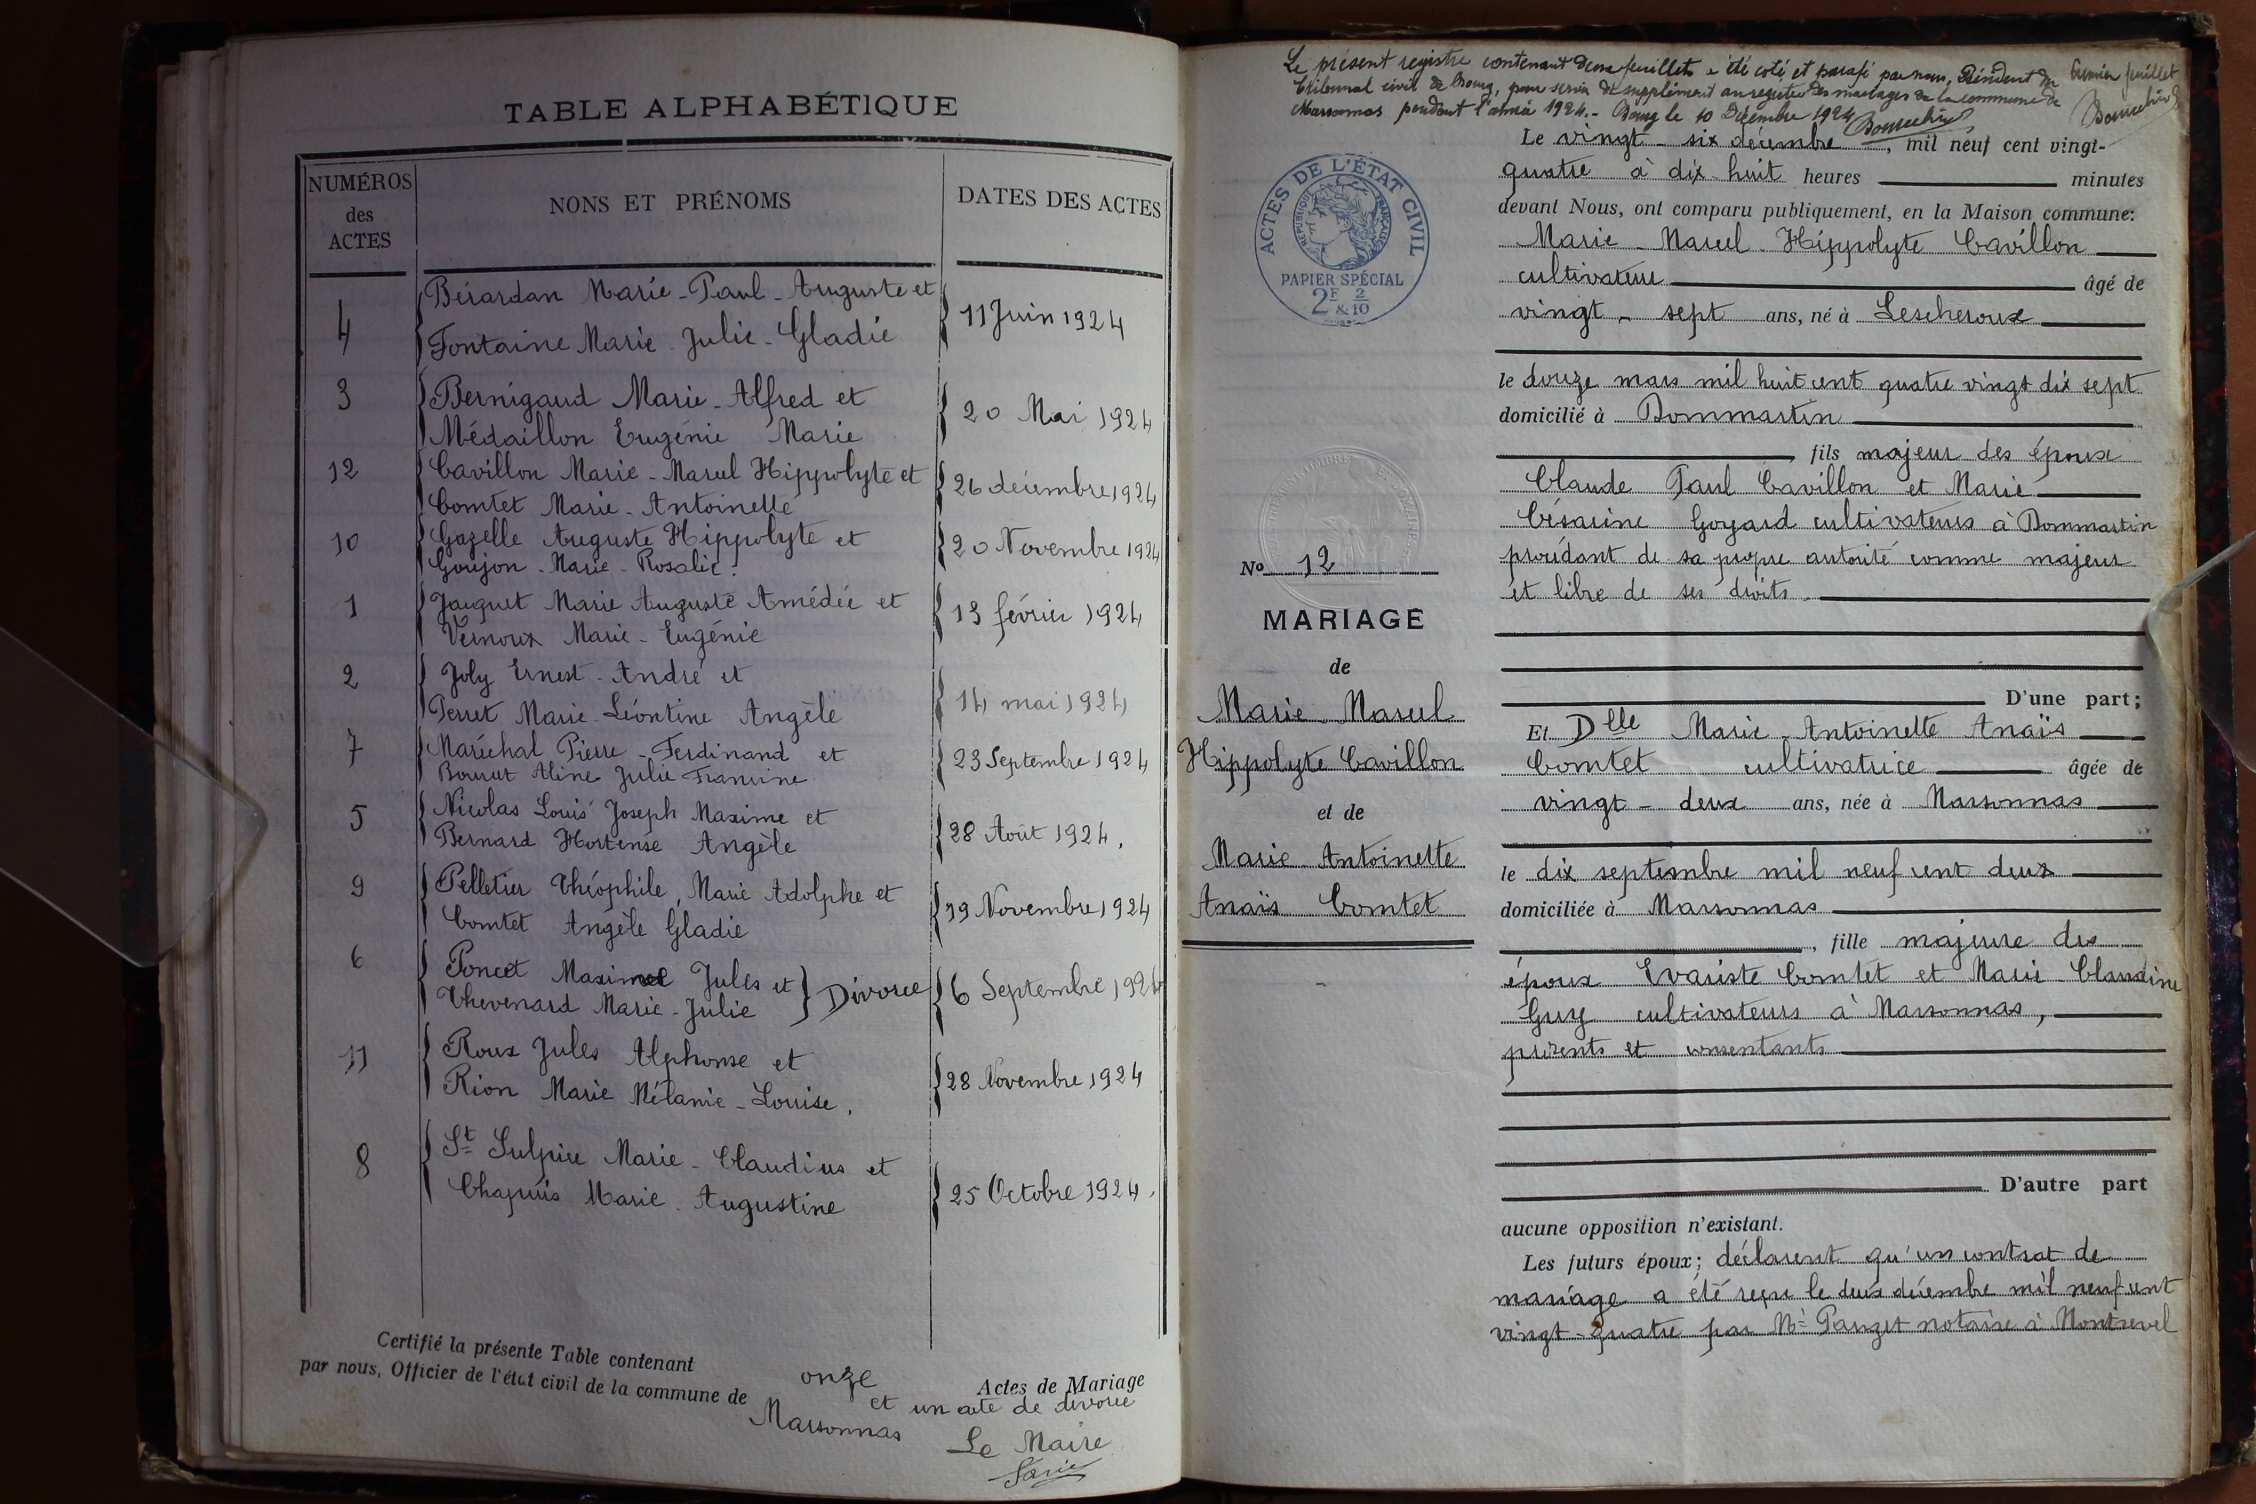 TABLE ALPHABÉTIQUE
NUMÉROS des ACTES
NONS ET PRÉNOMS
DATES DES ACTES
4
Bérardan Marie-Paul-Auguste et
Fontaine Marie Julie-Gladie
11 Juin 1924
3
Bernigaud Marie-Alfred et
Médaillon Eugénie Marie
20 Mai 1924
12
Cavillon Marie-Marcel Hippolyte et
Comtet Marie-Antoinette
26 décembre 1924
10
Gazelle Auguste Hippolyte et
Goujon-Marie-Rosalie.
20 Novembre 1924
1
Jacquet Marie Auguste Amédée et
Vernoux Marie-Eugénie
13 février 1924
2
Joly Ernest-André et
Perret Marie-Léontine Angèle
14 mai 1924
7
Maréchal Pierre-Ferdinand et
Aline Julie Francine
23 Septembre 1924
5
Nicolas Louis Joseph Maxime et
Bernard Hortense Angèle
28 Août 1924.
9
Pelletier Théophile, Marie Adolphe et
Comtet Angèle Gladie
19 Novembre 1924
6
Poncet Maxime Jules et
Thevenard Marie-Julie
Divorce
6 Septembre 1924
11
Roux Jules Alphonse et
Rion Marie Mélanie-Louise.
28 Novembre 1924
8
St Sulpice Marie-Claudius et
Chapuis Marie-Augustine
25 Octobre 1924.
Certifié la présente Table contenant onze Actes de Mariage
et un acte de divorce
par nous, Officier de l'état civil de la commune de Marsonnas
Le Maire
Le présent registre contenant deux feuillets a été coté et parafé par nous, Président du
Premier feuillet
tribunal civil de Bourg, pour servir de supplément au registre des mariages de la commune de
Marsonnas pendant l'année 1924.- Bourg le 10 Décembre 1924
ACTES DE L'ÉTAT CIVIL
RÉPUBLIQUE FRANÇAISE
PAPIER SPÉCIAL
2F & 2/10
No 12
MARIAGE
de
Marie-Marcel
Hippolyte Cavillon
et de
Marie Antoinette
Anaïs Comtet
Le vingt-six décembre, mil neuf cent vingt-
quatre à dix huit heures minutes
devant Nous, ont comparu publiquement, en la Maison commune:
Marie-Marcel-Hippolyte Cavillon
cultivateur âgé de
vingt-sept ans, né à Lescheroux
le douze mars mil huit cent quatre vingt dix sept
domicilié à Dommartin
fils majeur des époux
Claude Paul Cavillon et Marie
Césarine Goyard cultivateurs à Dommartin
procédant de sa propre autorité comme majeur
et libre de ses droits.
D'une part;
Et Dlle Marie-Antoinette Anaïs
Comtet cultivatrice âgée de
vingt-deux ans, née à Marsonnas
le dix septembre mil neuf cent deux
domiciliée à Marsonnas
, fille majeure des
époux Evariste Comtet et Marie-Claudine
Guy cultivateurs à Marsonnas,
présents et consentants
D'autre part
aucune opposition n'existant.
Les futurs époux; déclarent qu'un contrat de
mariage a été reçu le deux décembre mil neuf cent
vingt-quatre par Me Panget notaire à Montrevel